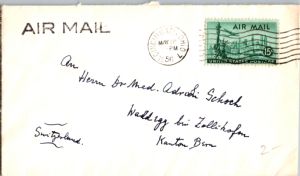 AIR MAIL
AIR MAIL
15¢
UNITED STATES POSTAGE
MAY
PM
An
Herrn Dr Med.
Schoch
bei Zollikofen
Kanton Bern
Switzerland.